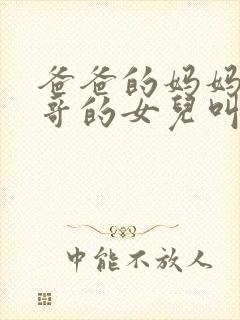 爸爸的妈妈
哥的女兒叫
中能不放人